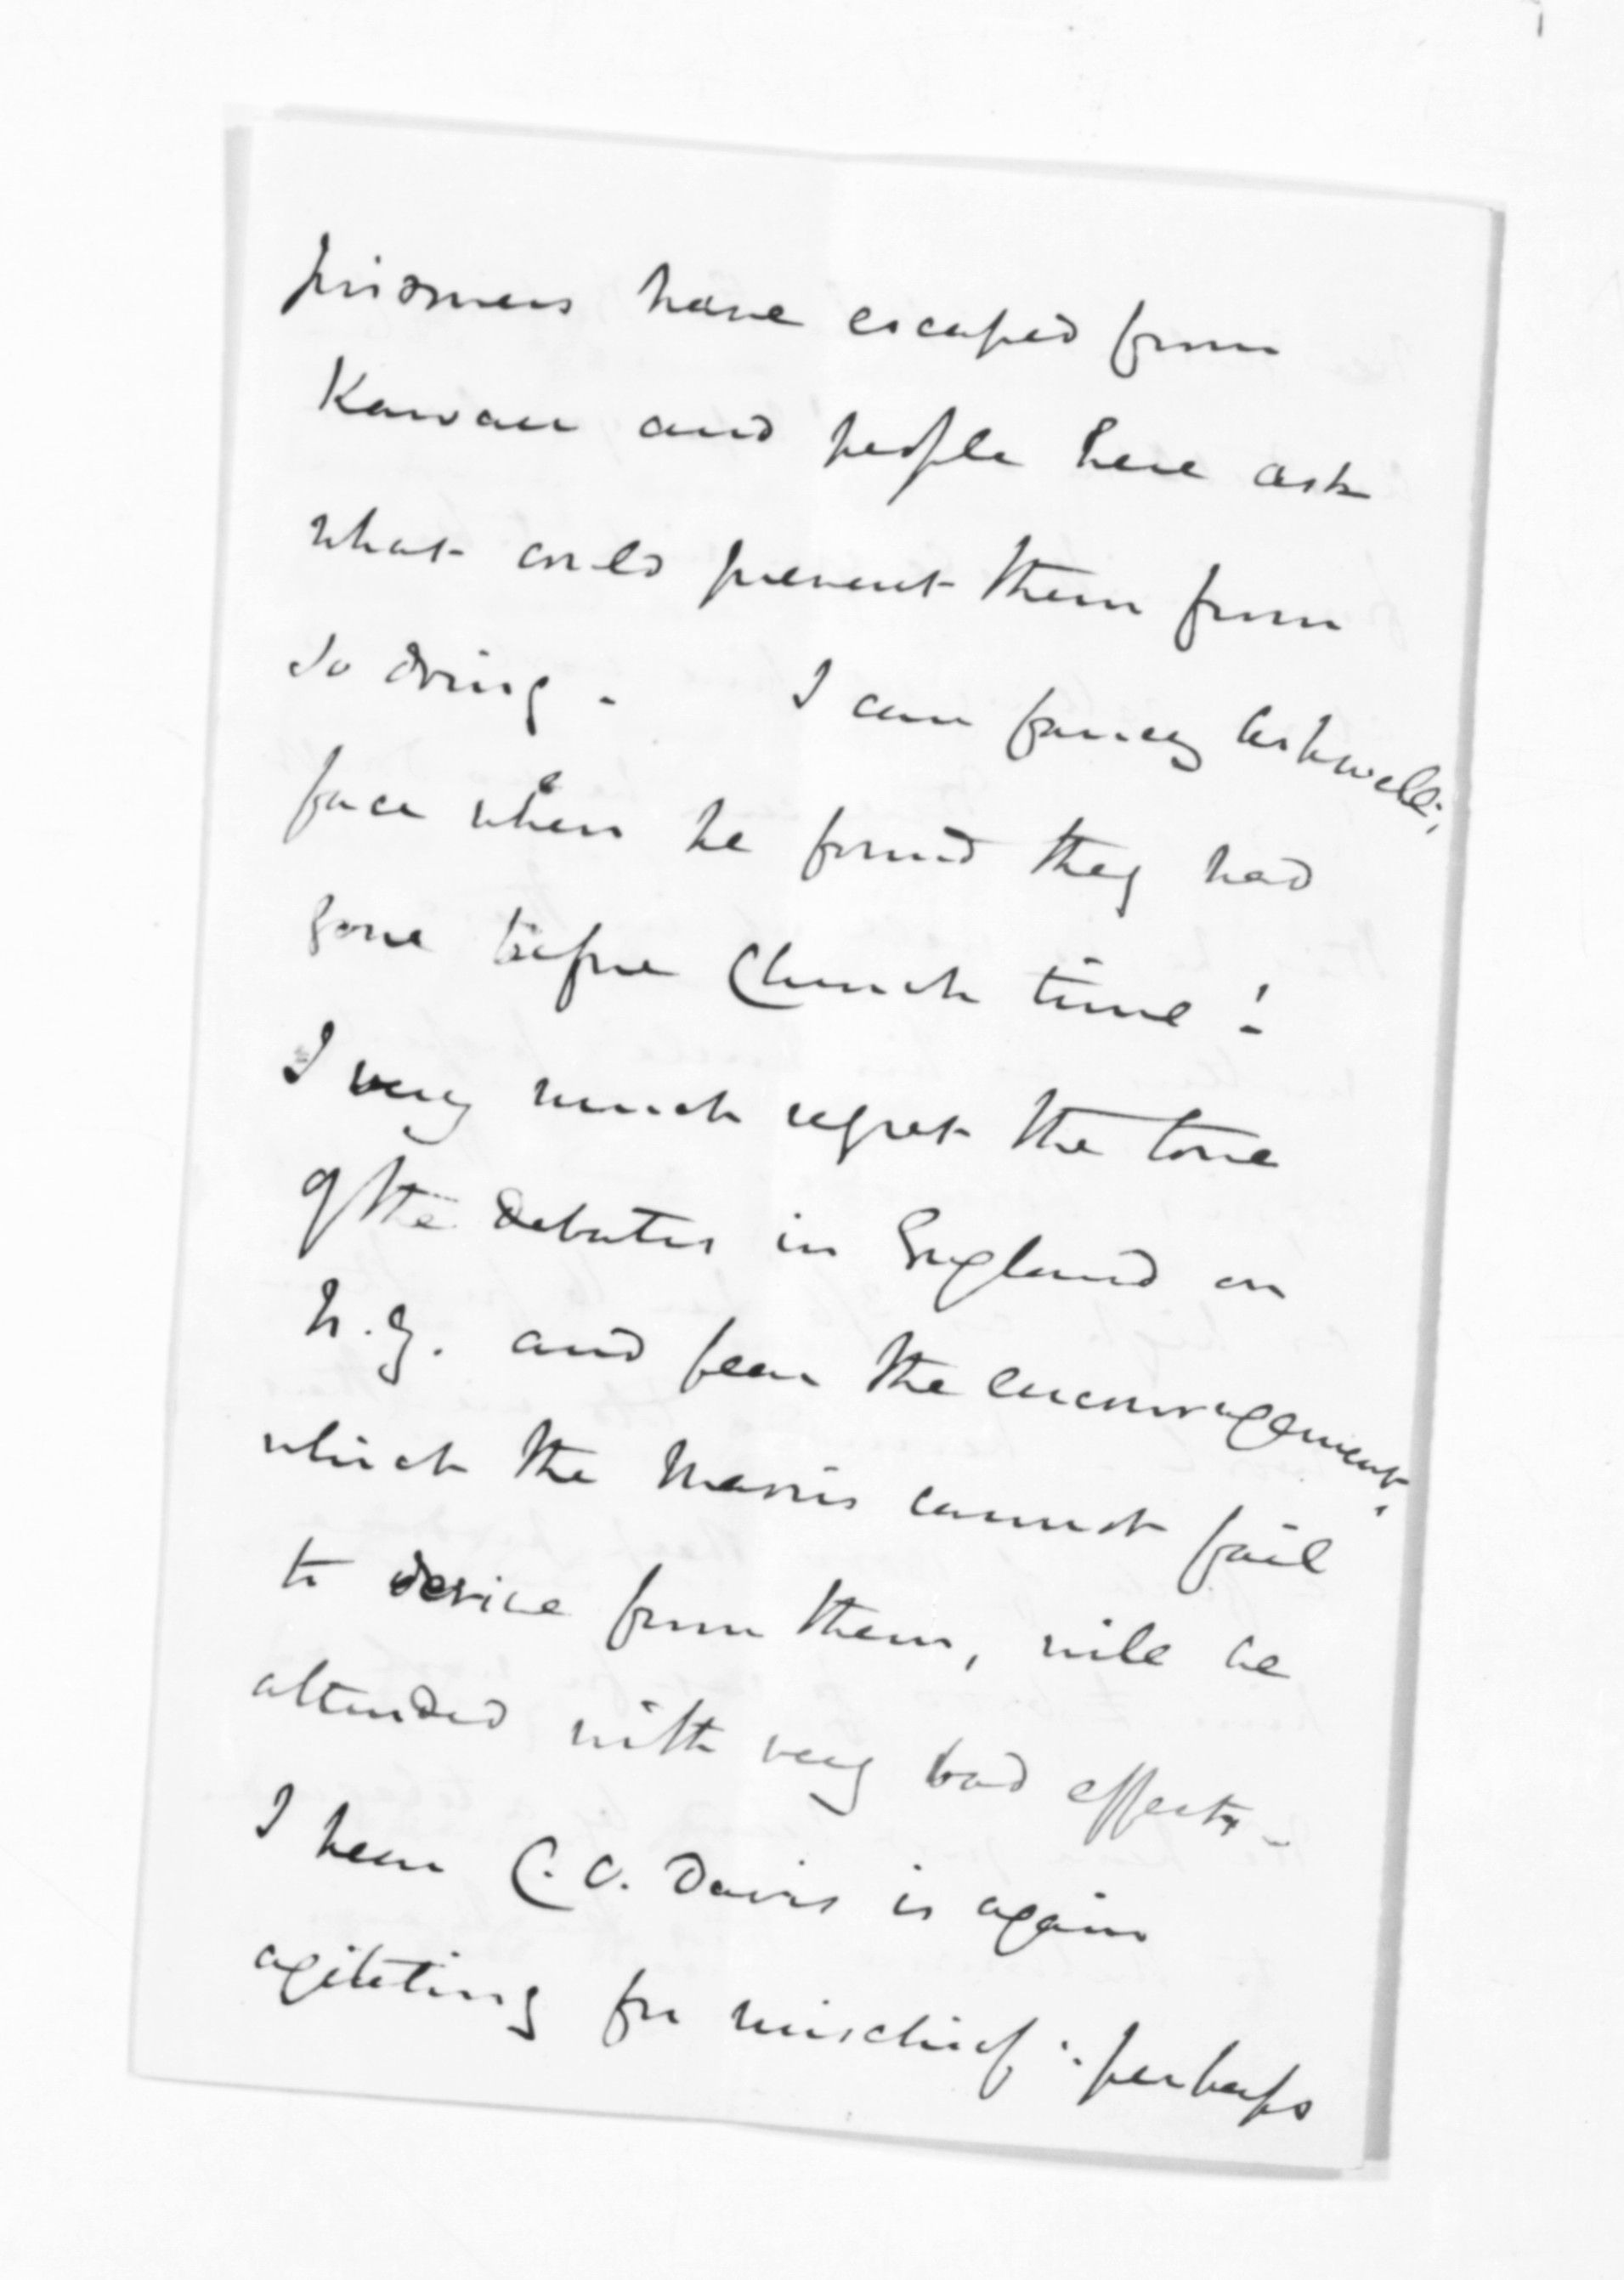 prisoners have escaped from
Kawau and people here ask
what could prevent them from
so doing. I can fancy Ashwell's
face when he found they had
gone before Church time!
I very much regret the tone
of the debates in England on
N.Z. and fear the encouragement
which the Maoris cannot fail
to derive from them, will be
attended with very bad effects -
I hear C.O. Davis is again
agitating for mischief: perhaps